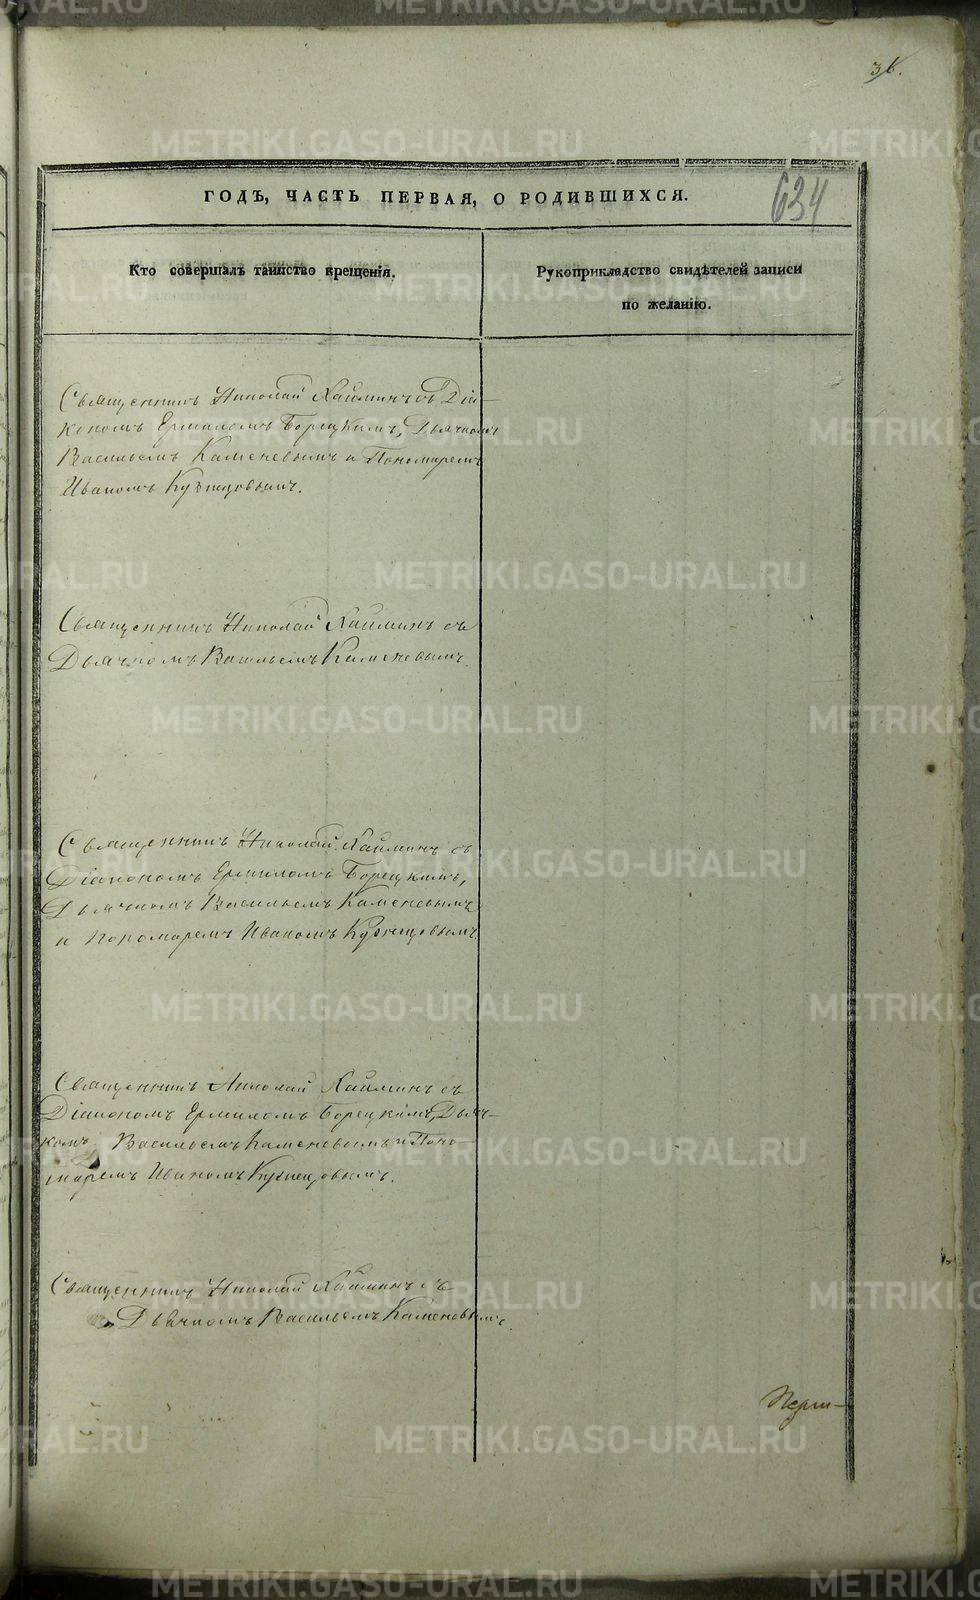 36.
ГОДЪ, ЧАСТЬ ПЕРВАЯ, О РОДИВШИХСЯ.
634
Кто совершалъ таинство крещенія.
Рукоприкладство свидѣтелей записи
по желанію.
Священникъ Николай Хайминъ съ Діа-
кономъ Ермиломъ Борецкимъ, Дьячкомъ
Васильемъ Каменевымъ и Пономаремъ
Иваномъ Кузнецовымъ.
Священникъ Николай Хайминъ съ
Дьячкомъ Васильемъ Каменевымъ.
Священникъ Николай Хайминъ съ
Діакономъ Ермиломъ Борецкимъ,
Дьячкомъ Васильемъ Каменевымъ
и Пономаремъ Иваномъ Кузнецовымъ.
Священникъ Николай Хайминъ съ
Діакономъ Ермиломъ Борецкимъ, Дьяч-
комъ Васильемъ Каменевымъ и Поно-
маремъ Иваномъ Кузнецовымъ.
Священникъ Николай Хайминъ съ
Дьячкомъ Васильемъ Каменевымъ.
METRIKI.GASO-URAL.RU